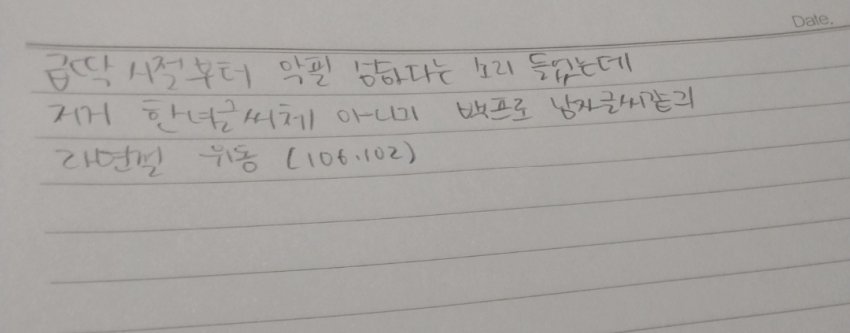 Date.
급딱 시절부터 악필 심하다는 소리 들었는데
저거 한녀글씨체 아니기 백프로 남자글씨같긔
라면필 위동 (106.102)